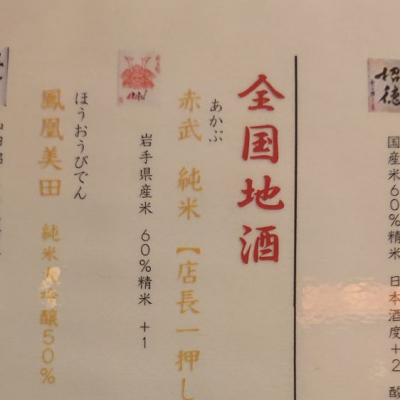 招徳
国産米60%精米 日本酒度+2 酸
全国地酒
あかぶ
赤武 純米【店長一押し
岩手県産米 60%精米 +1
ほうおうびでん
鳳凰美田 純米吟醸50%